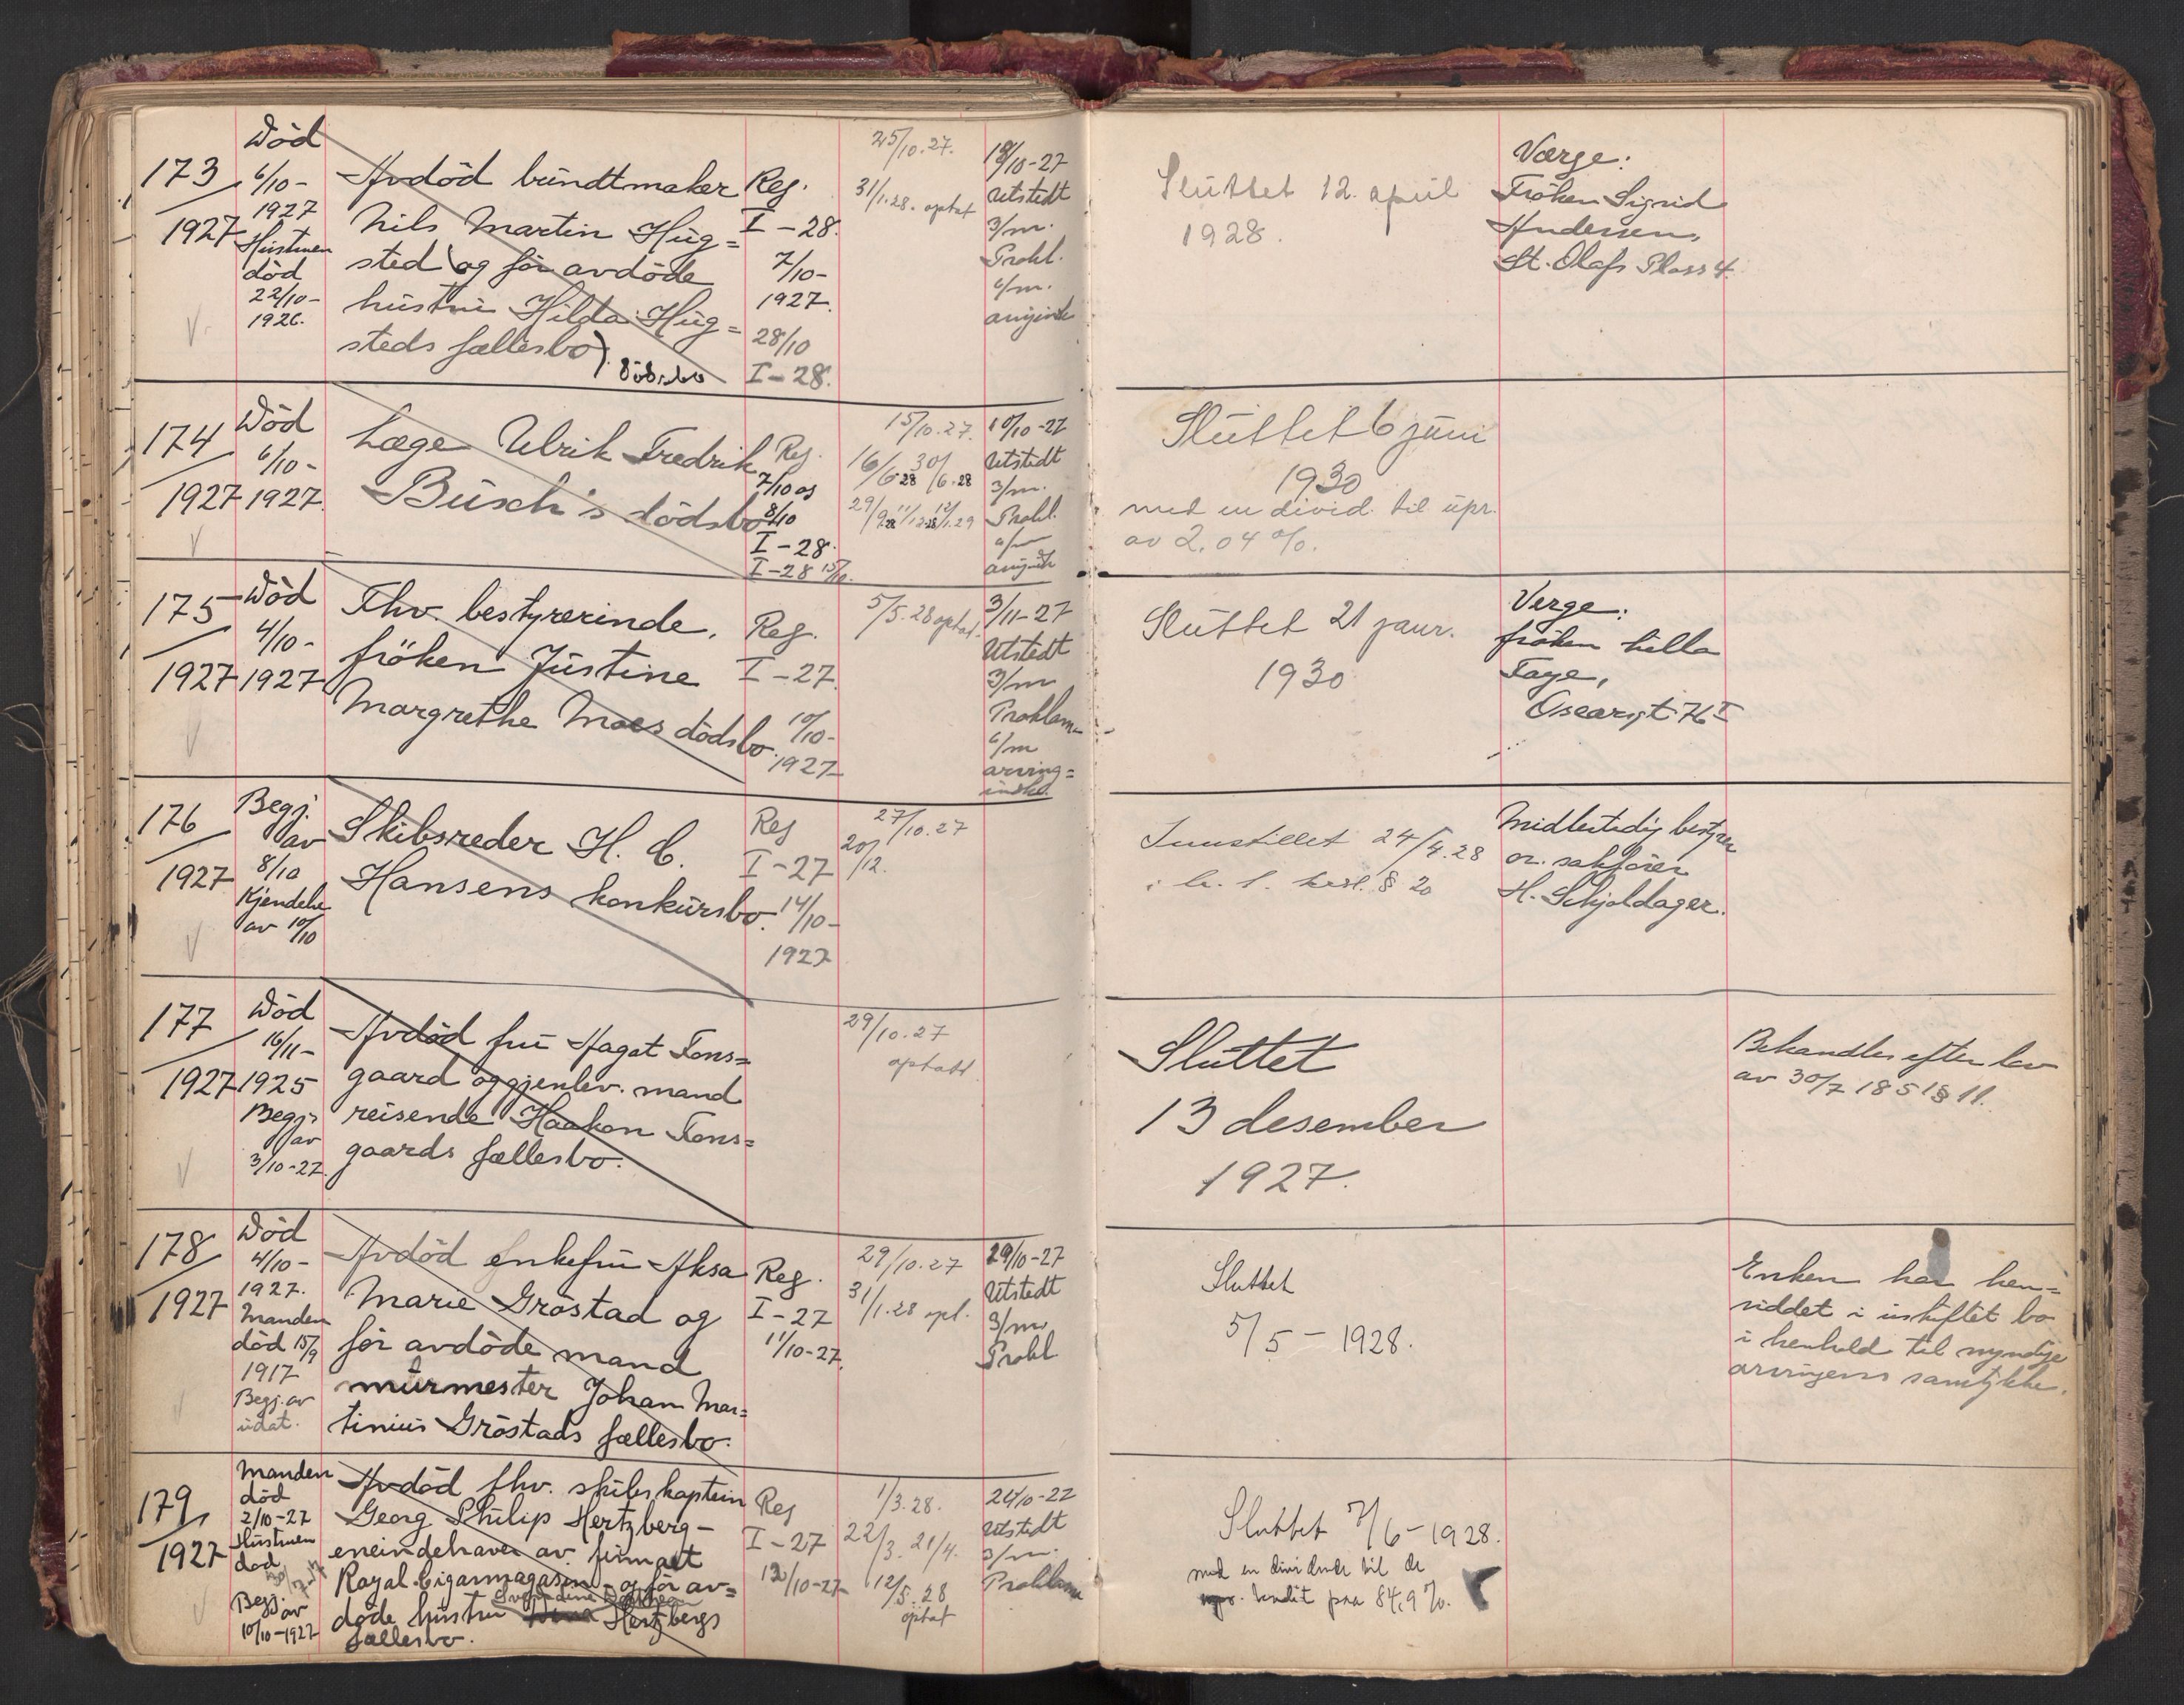 173
1927
Död
6/10-
1927
Hustruen
död
22/10-
1926.
Avdöd bundtmaker
Nils Martin Hug=
sted (og för avdöde
hustru Hilda Hug=
steds fællesbo). Dödsbo
Reg.
I-28.
7/10-
1927.
28/10
I-28.
25/10.27.
31/1.28. optat
Utstedt
3/m.
Prokl.
Sluttet 12. april
1928.
Værge:
Fröken Sigrid
Andersen,
St. Olafs Plass 4.
174
1927
Död
6/10-
1927.
Læge Ulrik Fredrik
Busch's dödsbo
Reg.
7/10 og
8/10
I-28.
I-28
15/10.27.
16/6 28 30/6.28
10/10-27
Utstedt
3/m.
Prokl.
Sluttet 6 juni
1930
med en divid. til upr.
av 2,04 %.
175
1927
Död
4/10-
1927
Fhv. bestyrerinde,
fröken Justine
Margrethe Moes dödsbo.
Reg.
I-27.
10/10-
1927
5/5.28 optat.
3/11-27
Utstedt
3/m
Proklama
6/m
arving=
Sluttet 21 januar.
1930
Verge:
fröken Lilla
Faye,
Oscarsgt. 76 I
176
1927
Begj
av
8/10
Kjendelse
av 10/10
Skibsreder H. C.
Hansens konkursbo.
Reg
I-27
14/10-
1927
27/10.27
20/12.
Innstillet 24/4.28
§ 20
Midlertidig bestyrer
or. sakförer
H. Schjoldager.
177
1927
Död
16/11-
1925
Begj.
av
3/10-27.
Avdöd fru Aagot Tons=
gaard og gjenlev. mand
reisende Haakon Tons=
gaards fællesbo.
29/10.27
optatt
Sluttet
13 desember
1927.
Behandles efter lov
av 30/7 1851 § 11.
178
1927
Död
4/10-
1927.
Manden
död 15/9
1917
Begj. av
udat.
Avdöd enkefru Aksa
Marie Gröstad og
för avdöde mand
murmester Johan Mar=
tinius Gröstads fællesbo.
Reg.
I-27
11/10-27.
29/10.27
31/1.28 opt.
29/10-27
Utstedt
3/m
Prokl
Sluttet
5/5-1928.
Enken har hen=
siddet i uskiftet bo
i henhold til myndige
arvingers samtykke.
179
1927
Manden
död
2/10-27
Hustruen
död
Begj. av
10/10-1927
Avdöd fhv. skibskaptein
Georg Philip Hertzberg-
eneindehaver av firmaet
Royal Cigarmagasin - og för av=
döde hustru Hertzbergs
fællesbo.
Reg
I-27
12/10-27
1/3.28.
22/3. 21/4.
12/5.28
optat
Utstedt
3/m.
Proklama
Sluttet 7/6-1928.
med en dividende til de
upr. kredit paa 84,9 %.